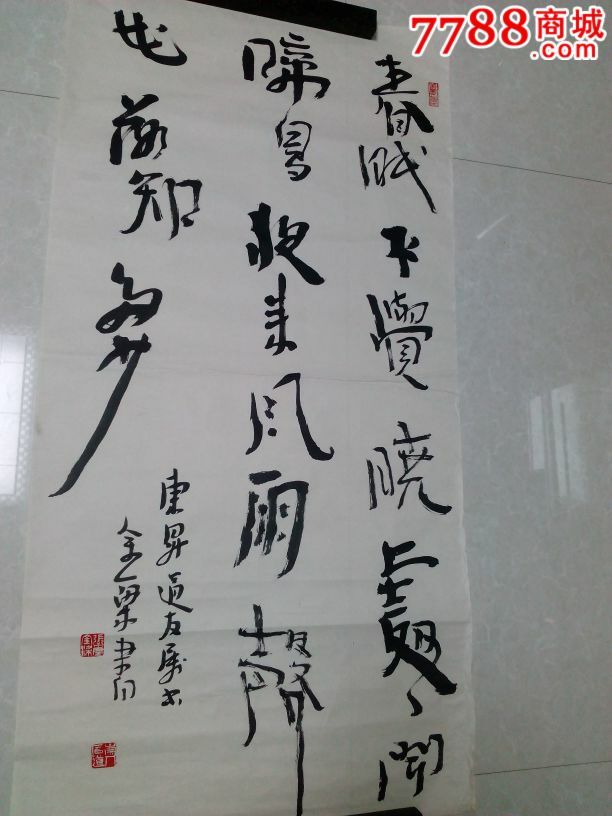 7788商城
.com
春眠不覺曉處々聞
啼鳥夜来風雨聲
花落知多少
東昇道友属書
金梁書